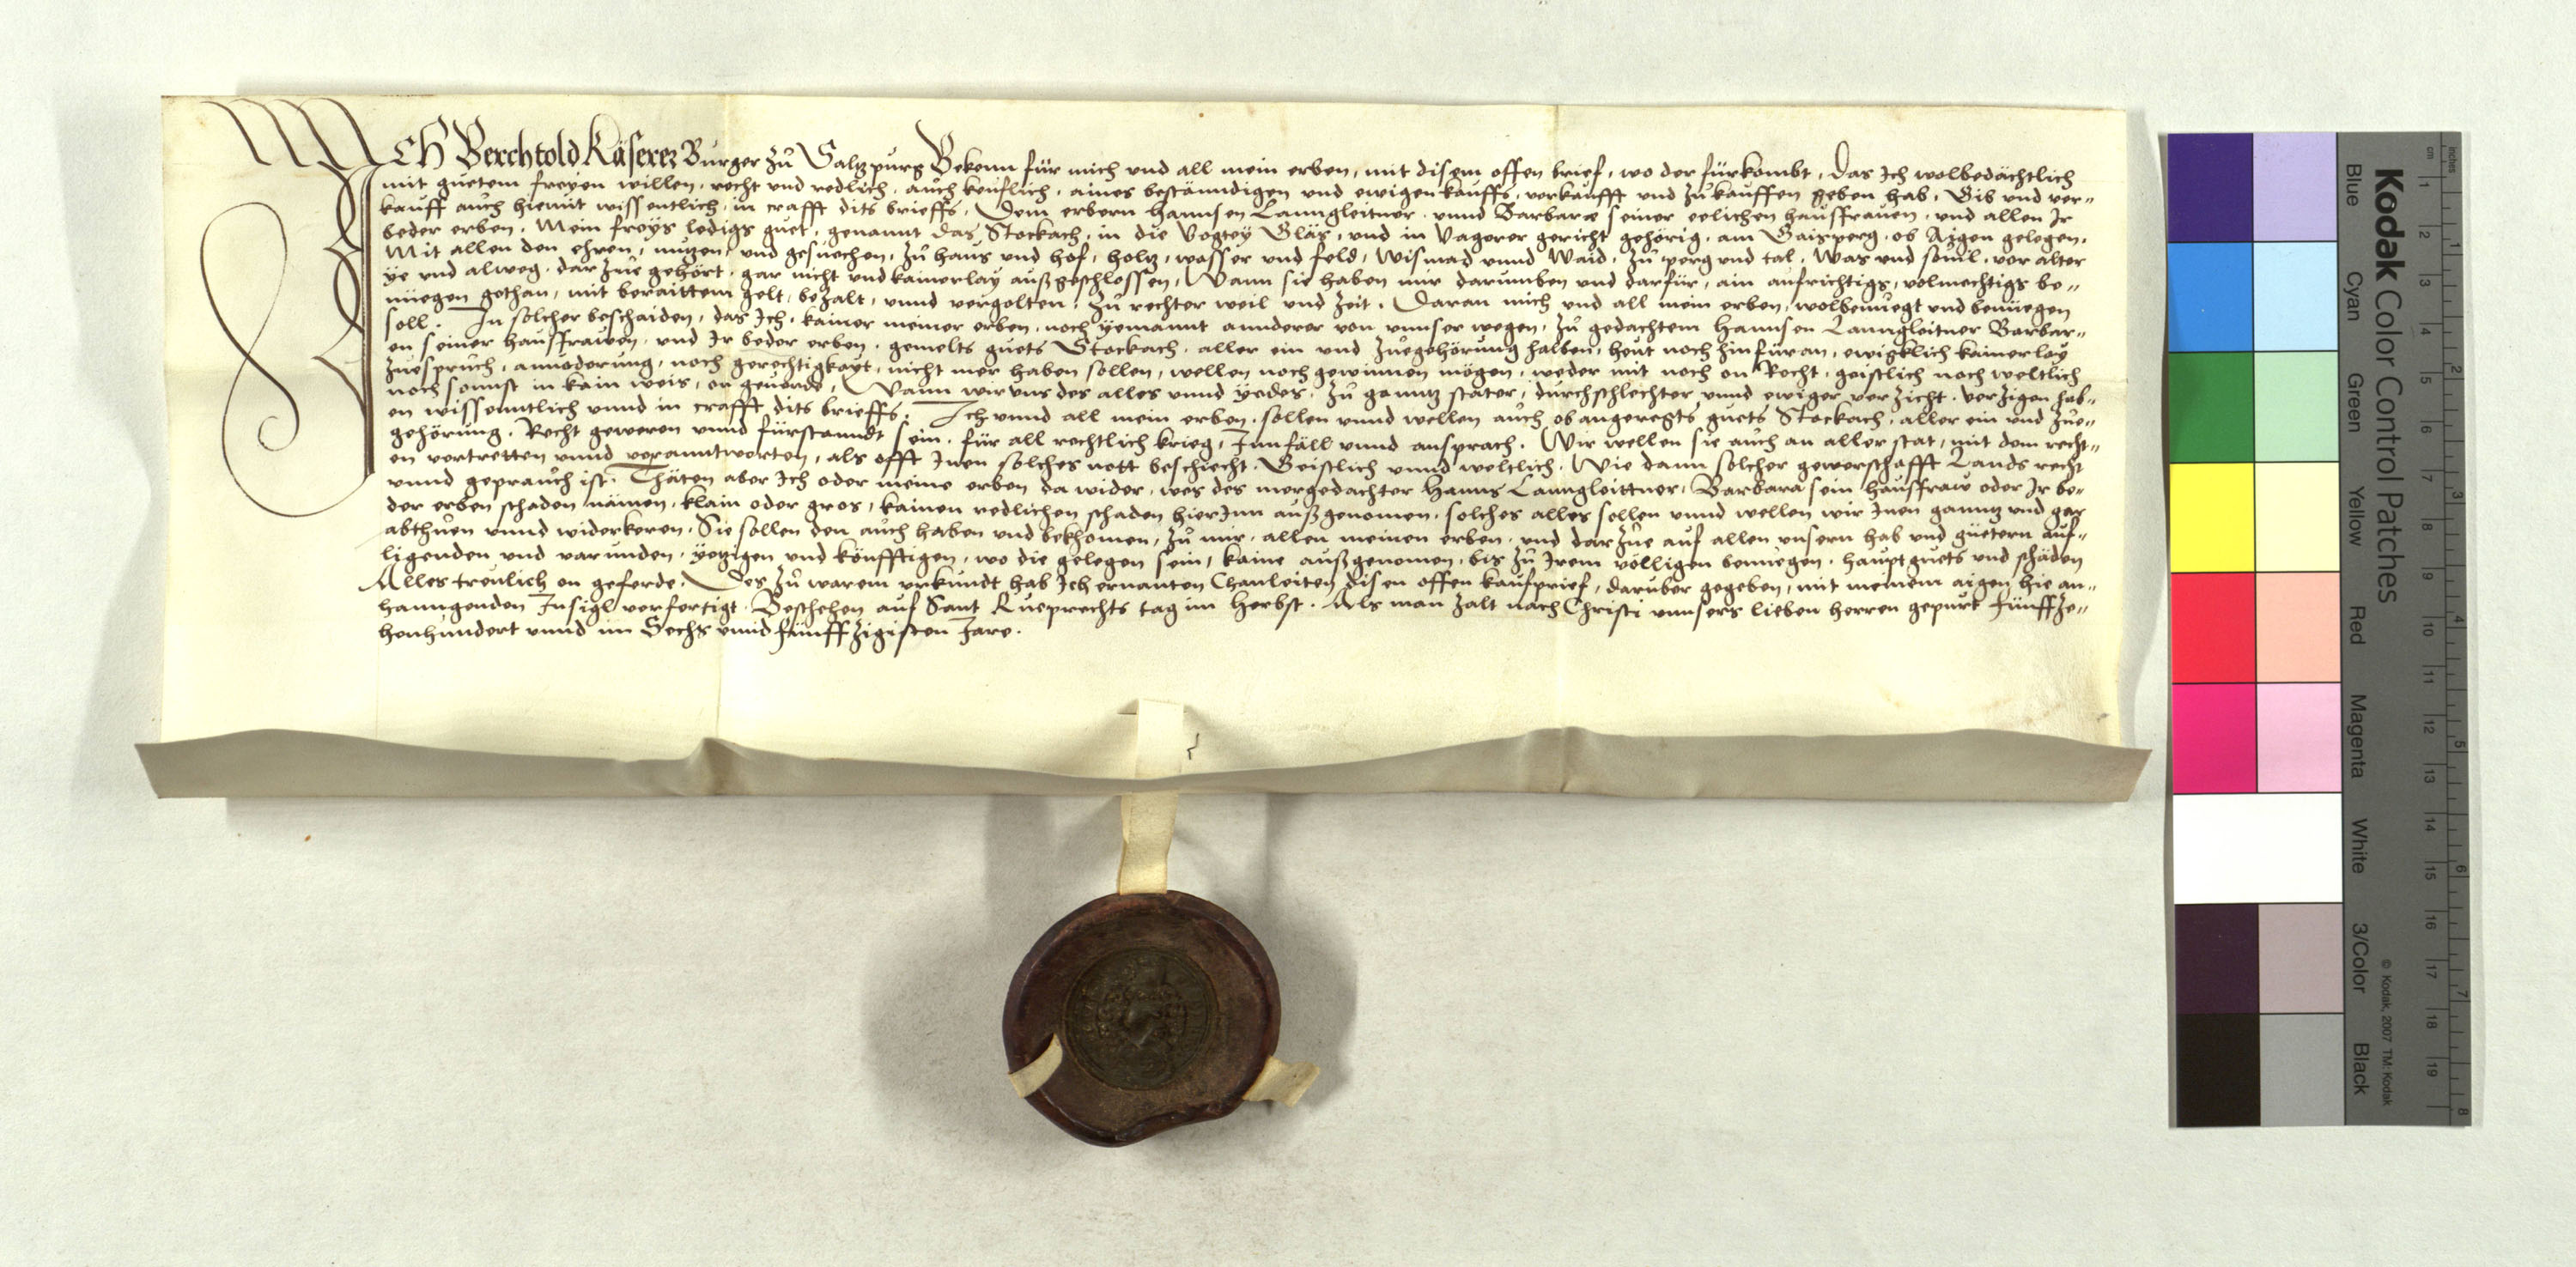 Ich Berchtold Käserer Burger zů Saltzpurg Bekenn für mich und all mein erben, mit disem offen brief, wo der fürkombt, Das Ich wolbedächtlich
mit guetem freyen willen, recht und redlich, auch keuflich, aines bestänndigen und ewigen kauffs, verkaufft und zů kauffen geben hab, Gib und ver-
kauff auch hiemit wissentlich, in crafft dits brieffs, Dem erbern Hannsen Lanngleitner, unnd Barbara seiner eelichen hausfrauen, und allen Ir
beder erben, Mein freys ledigs guet, genannt das Stockach, in die Vogtey Gläs, und in Vagerer gericht gehörig, am Gaisperg, ob Aigen gelegen,
Mit allen den ehren, nutzen, und gesuechen, zů haus und hof, holtz, wasser und feld, Wismad unnd Waid, zů perg und tal, Was und sovil, vor alter
ye und alweg, darzue gehört, gar nicht und kainerlay außgeschlossen, Wann sie haben mir darumben und darfür, ain aufrichtigs, volmechtigs be-
nüegen gethan, mit beraittem gelt, bezalt, unnd vergolten, zů rechter weil und zeit, Daran mich und all mein erben, wolbenuegt und benüegen
soll. In solcher beschaiden, das Ich, kainer meiner erben, noch yemannt annderer von unnser wegen, zů gedachtem Hannsen Lanngleitner Barbar-
en seiner hausfrawen, und Ir beder erben, gemelts guets Stockach, aller ein und zuegehörung halben, heut noch hinfüran, ewigklich kainerlay
zuespruch, annoderung, noch gerechtigkayt, nicht mer haben sollen, wellen noch gewinnen mögen, weder mit noch on Recht, geistlich noch weltlich
noch sonnst in kain weis, on geverde, Wann wir uns des alles unnd yedes, zů ganntz stäter, durchschlechter unnd ewiger verzicht, verzigen hab-
en wissenntlich unnd in crafft dits brieffs. Ich unnd all mein erben, sollen unnd wellen auch obangeregts guets Stockach, aller ein und zue-
gehörung, Recht geweren unnd fürstanndt sein, für all rechtlich krieg, Innfäll unnd ansprach, Wir wellen sie auch an aller stat, mit dem recht-
en vertretten unnd veranntworten, als offt Inen solches nott beschiecht, Geistlich unnd weltlich, Wie dann solcher gewerschafft Lands recht
unnd geprauch ist. Thäten aber Ich oder meine erben da wider, wes des mergedachter Hanns Lanngleittner, Barbara sein hausfraw oder Ir be-
der erben schaden nämen, klain oder gros, kainen redlichen schaden hierInn außgenomen, solches alles sollen unnd wellen wir Inen ganntz und gar
abthuen unnd widerkeren, Sie sollen den auch haben und bekhomen, zů mir, allen meinen erben, und darzue auf allen unsern hab und güetern auf-
ligenden und varunden, yetzigen und könfftigen, wo die gelegen sein, kaine außgenomen, bis zů Irem völligen benüegen, hauptguets und schäden
Alles treulich on geferde. Des zů warem urkundt hab Ich ernanten Chauleiten disen offen kaufprief, daruber gegeben, mit meinem aigen hie an-
hanngenden Insigl verfertigt. Beschehen auf Sant Rueprechts tag im Herbst. Als man zalt nach Christi unnsers lieben herren gepurt Fünffze-
henhundert unnd im Sechs unnd fünffzigisten Jare.
Kodak Color Control Patches
Blue Cyan Green Yellow Red Magenta White 3/Color Black
© Kodak, 2007 TM: Kodak
cm 1 2 3 4 5 6 7 8 9 10 11 12 13 14 15 16 17 18 19
inches 1 2 3 4 5 6 7 8